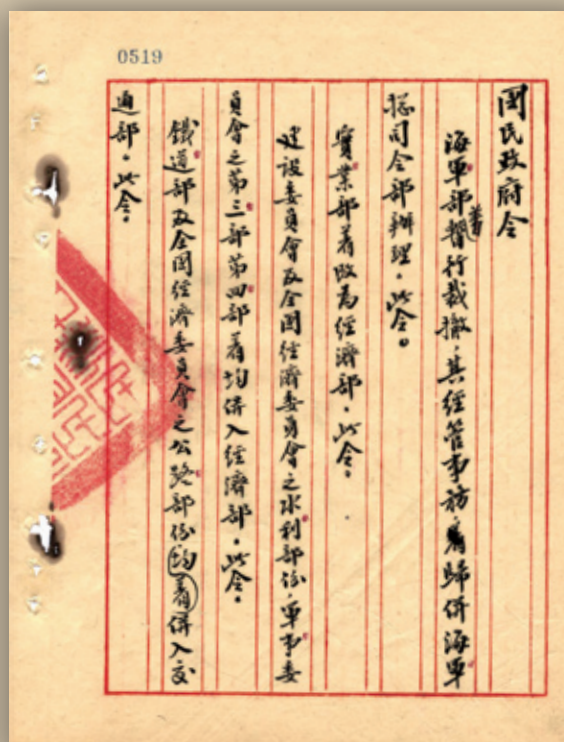 0519
國民政府令
海軍部著暫行裁撤，其經管事務，著歸併海軍
總司令部辦理，此令。
實業部著改為經濟部，此令。
建設委員會及全國經濟委員會之水利部份，軍事委
員會之第三部第四部着均併入經濟部，此令。
鐵道部及全國經濟委員會之公路部份均着併入交
通部，此令。